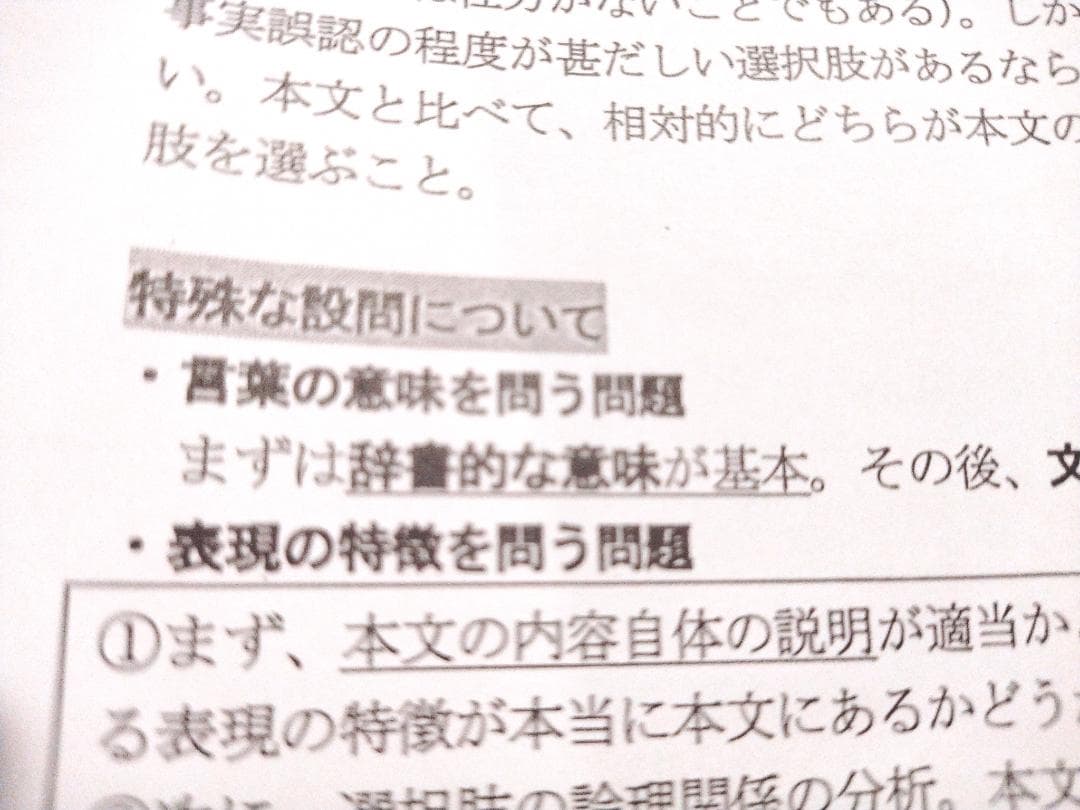 がないことでもある)。しか
事実誤認の程度が甚だしい選択肢があるなら
い。本文と比べて、相対的にどちらが本文の
肢を選ぶこと。
特殊な設問について
・言葉の意味を問う問題
まずは辞書的な意味が基本。その後、文
・表現の特徴を問う問題
①まず、本文の内容自体の説明が適当か
る表現の特徴が本当に本文にあるかどう
選択肢の論理関係の分析。本文